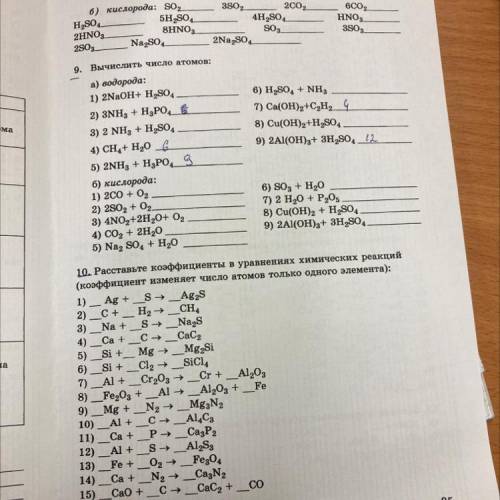 б) кислорода: SO₂____ 3SO₂____ 2CO₂____ 6CO₂____
H₂SO₄____ 5H₂SO₄____ 4H₂SO₄____ HNO₃____
2HNO₃____ 8HNO₃____ SO₃____ 3SO₃____
2SO₃____ Na₂SO₄____ 2Na₂SO₄____
9. Вычислить число атомов:
а) водорода:
1) 2NaOH+ H₂SO₄____
2) 3NH₃ + H₃PO₄____
3) 2 NH₃ + H₂SO₄____
4) CH₄+ H₂O 6
5) 2NH₃ + H₃PO₄ 9
6) H₂SO₄ + NH₃____
7) Ca(OH)₂+C₂H₂ 4
8) Cu(OH)₂+H₂SO₄____
9) 2Al(OH)₃+ 3H₂SO₄ 12
б) кислорода:
1) 2CO + O₂____
2) 2SO₂ + O₂____
3) 4NO₂+2H₂O+ O₂____
4) CO₂ + 2H₂O____
5) Na₂ SO₄ + H₂O____
6) SO₃ + H₂O____
7) 2 H₂O + P₂O₅____
8) Cu(OH)₂ + H₂SO₄____
9) 2Al(OH)₃+ 3H₂SO₄____
10. Расставьте коэффициенты в уравнениях химических реакций
(коэффициент изменяет число атомов только одного элемента):
1) __ Ag + __S → __Ag₂S
2) __C + __ H₂→ __CH₄
3) __ Na + __S → __Na₂S
4) __ Ca + __C → __ CaC₂
5) __Si + __ Mg → __Mg₂Si
6) __Si + __ Cl₂ → __SiCl₄
7) __Al + __Cr₂O₃→ __Cr + __Al₂O₃
8) __Fe₂O₃ + __Al → __Al₂O₃ + __Fe
9) __Mg + __N₂ → __Mg₃N₂
10) __Al + __C → __Al₄C₃
11) __Ca + __P → __Ca₃P₂
12) __Al + __S → __Al₂S₃
13) __Fe + __O₂ → __Fe₃O₄
14) __Ca + __N₂ → __Ca₃N₂
15) __CaO + __C → __CaC₂ + __CO